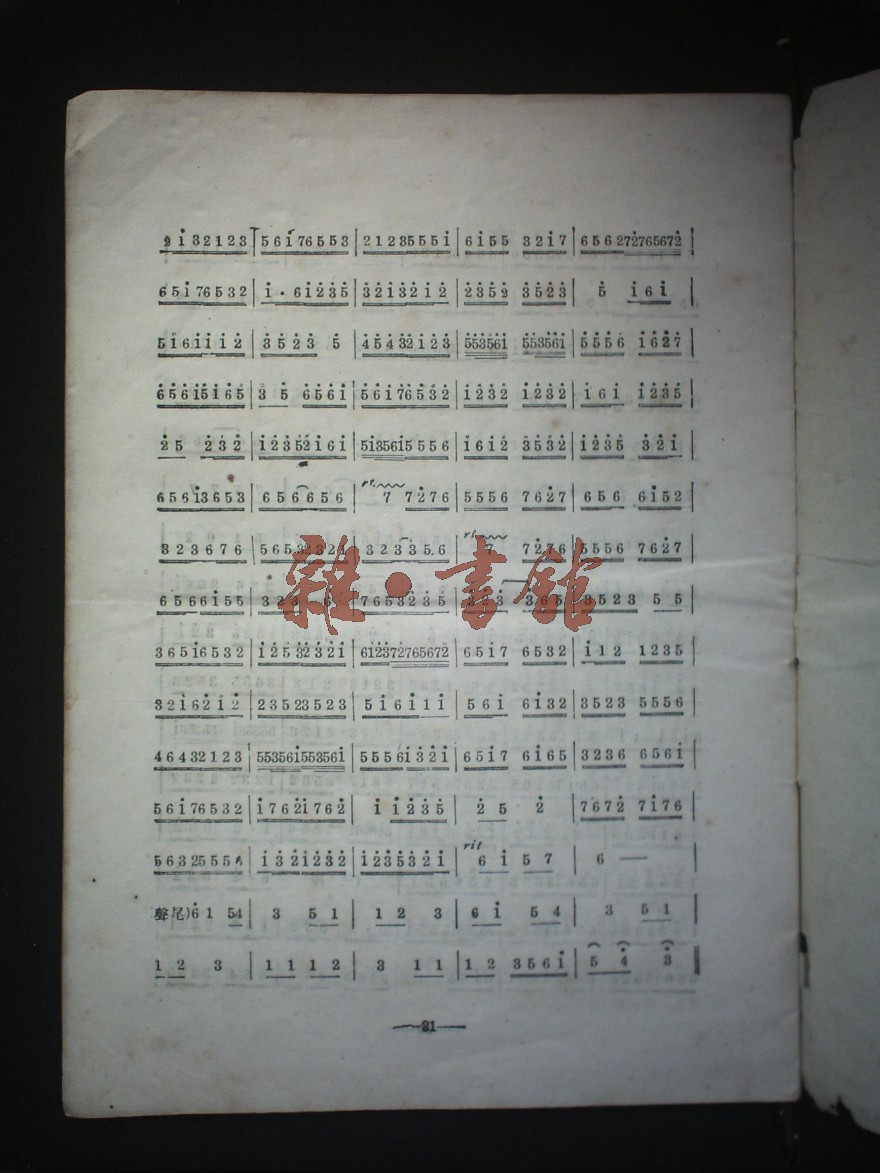 2 i 3 2 1 2 3 | 5 6 i 7 6 5 5 3 | 2 1 2 3 5 5 5 i | 6 i 5 5 3 2 i 7 | 6 5 6 2 7 2 7 6 5 6 7 2 |
6 5 i 7 6 5 3 2 | i · 6 i 2 3 5 | 3 2 i 3 2 i 2 | 2 3 5 2 3 5 2 3 | 5 i 6 i |
5 i 6 i i i 2 | 3 5 2 3 5 | 4 5 4 3 2 i 2 3 | 5 5 3 5 6 i 5 5 3 5 6 i | 5 5 5 6 i 6 2 7 |
6 5 6 i 5 i 6 5 | 3 5 6 5 6 i | 5 6 i 7 6 5 3 2 | i 2 3 2 i 2 3 2 | i 6 i i 2 3 5 |
2 5 2 3 2 | i 2 3 5 2 i 6 i | 5 i 3 5 6 i 5 5 5 6 | i 6 i 2 3 5 3 2 | i 2 3 5 3 2 i |
6 5 6 i 3 6 5 3 | 6 5 6 6 5 6 | rt. 7 7 2 7 6 | 5 5 5 6 7 6 2 7 | 6 5 6 6 i 5 2 |
3 2 3 6 7 6 | 5 6 5 3 2 3 2 1 | 3 2 3 3 5 6 | 7 7 2 7 6 | 5 5 5 6 7 6 2 7 |
6 5 6 6 i 5 5 | 3 2 3 6 | 7 6 5 3 2 3 5 | 3 2 3 3 6 5 | 3 5 2 3 5 5 |
3 6 5 i 6 5 3 2 | i 2 5 3 2 3 2 i | 6 i 2 3 7 2 7 6 5 6 7 2 | 6 5 i 7 6 5 3 2 | i 1 2 1 2 3 5 |
3 2 i 6 2 i 2 | 2 3 5 2 3 5 2 3 | 5 i 6 i 1 i | 5 6 i 6 i 3 2 | 3 5 2 3 5 5 5 6 |
4 6 4 3 2 1 2 3 | 5 5 3 5 6 i 5 5 3 5 6 i | 5 5 5 6 i 3 2 i | 6 5 i 7 6 i 6 5 | 3 2 3 6 6 5 6 i |
5 6 i 7 6 5 3 2 | i 7 6 2 i 7 6 2 | i i 2 3 5 | 2 5 2 | 7 6 7 2 7 i 7 6 |
5 6 3 2 5 5 5 6 | i 3 2 i 2 3 2 | i 2 3 5 3 2 i | rit 6 i 5 7 | 6 — |
聲尾) 6 1 5 4 | 3 5 1 | 1 2 3 | 6 i 5 4 | 3 5 1 |
1 2 3 | 1 1 1 2 | 3 1 1 | 1 2 3 5 6 i | 5 4 3 ‖
—21—
雜·書館